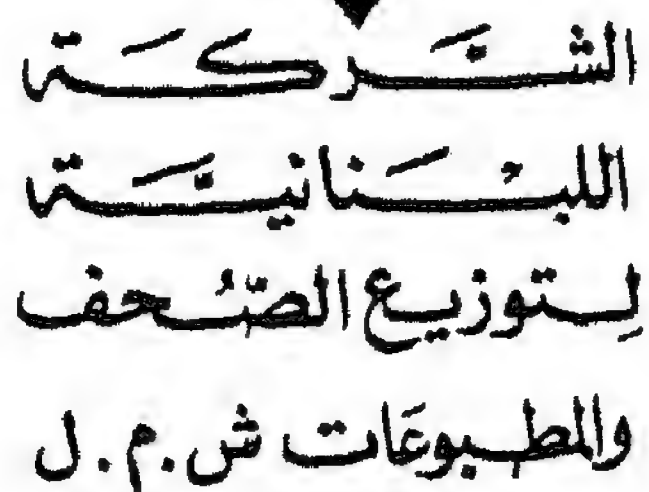 الشَّركَة
اللبُنَانيَّة
لِتوزيع الصُّحف
والمطبوعَات ش.م.ل